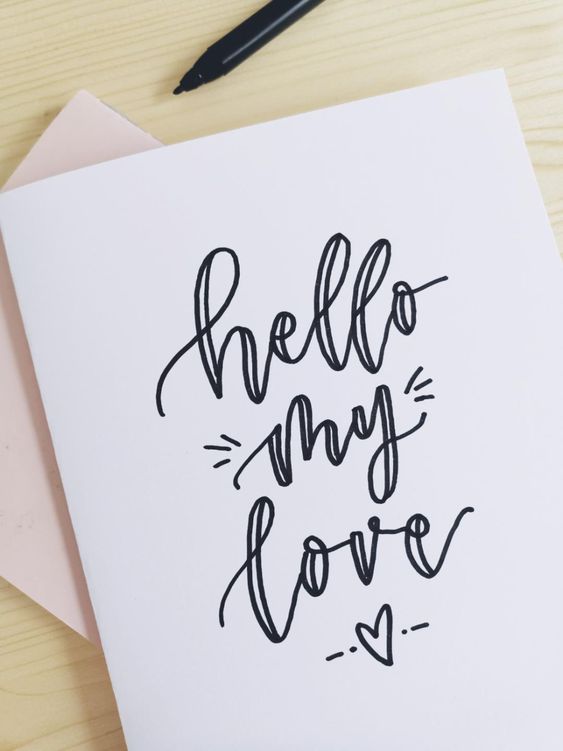 hello
my
love